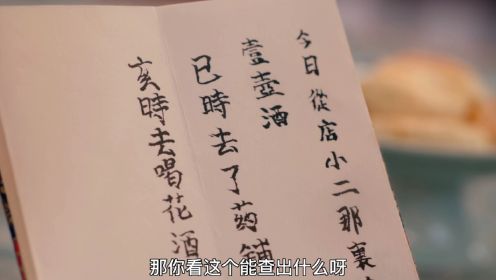 今日從店小二那裏
壹壺酒
巳時去了药鋪
亥時去喝花酒
那你看这个能查出什么呀